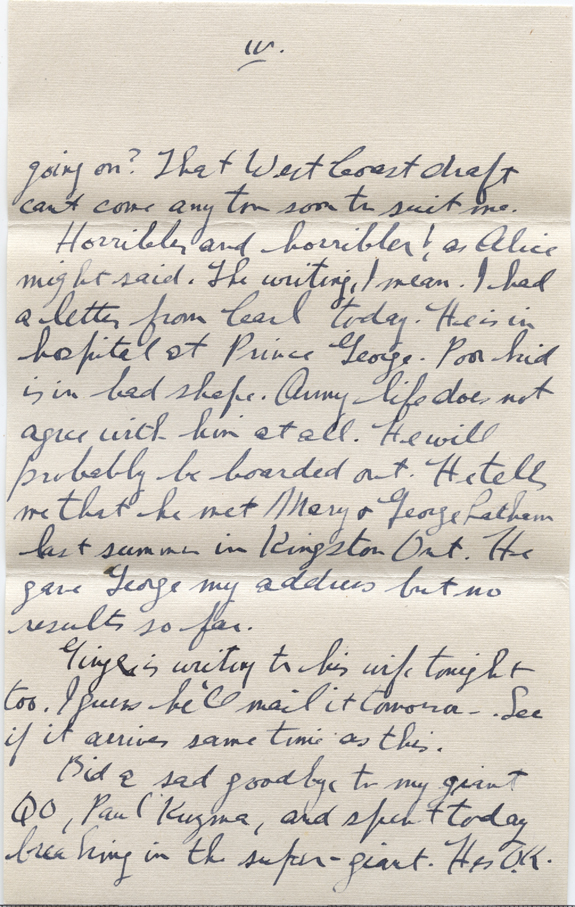 IV.
going on? That West Coast draft
can't come any too soon to suit me.
Horribler and horribler!, as Alice
might said. The writing, I mean. I had
a letter from Cecil today. He is in
hospital at Prince George. Poor kid
is in bad shape. Army life does not
agree with him at all. He will
probably be boarded out. He tells
me that he met Mary & George Latham
last summer in Kingston Ont. He
gave George my address but no
results so far.
Ginge is writing to his wife tonight
too. I guess he'll mail it tomorrow -. See
if it arrives same time as this.
Bid a sad goodbye to my giant
QO, Paul Kuzma, and spent today
breaking in the super-giant. He's O.K.